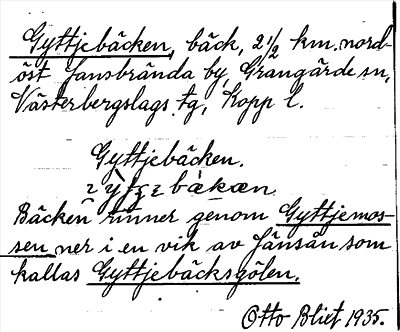 Gyttjebäcken, bäck, 2 1/2 km. nord-
öst Jansbrända by, Grangärde sn,
Västerbergslags tg, Kopp l.
Gyttjebäcken.
Bäcken rinner genom Gyttjemos-
sen ner i en vik av Jänsån som
kallas Gyttjebäcksgölen.
Otto Blixt 1935.